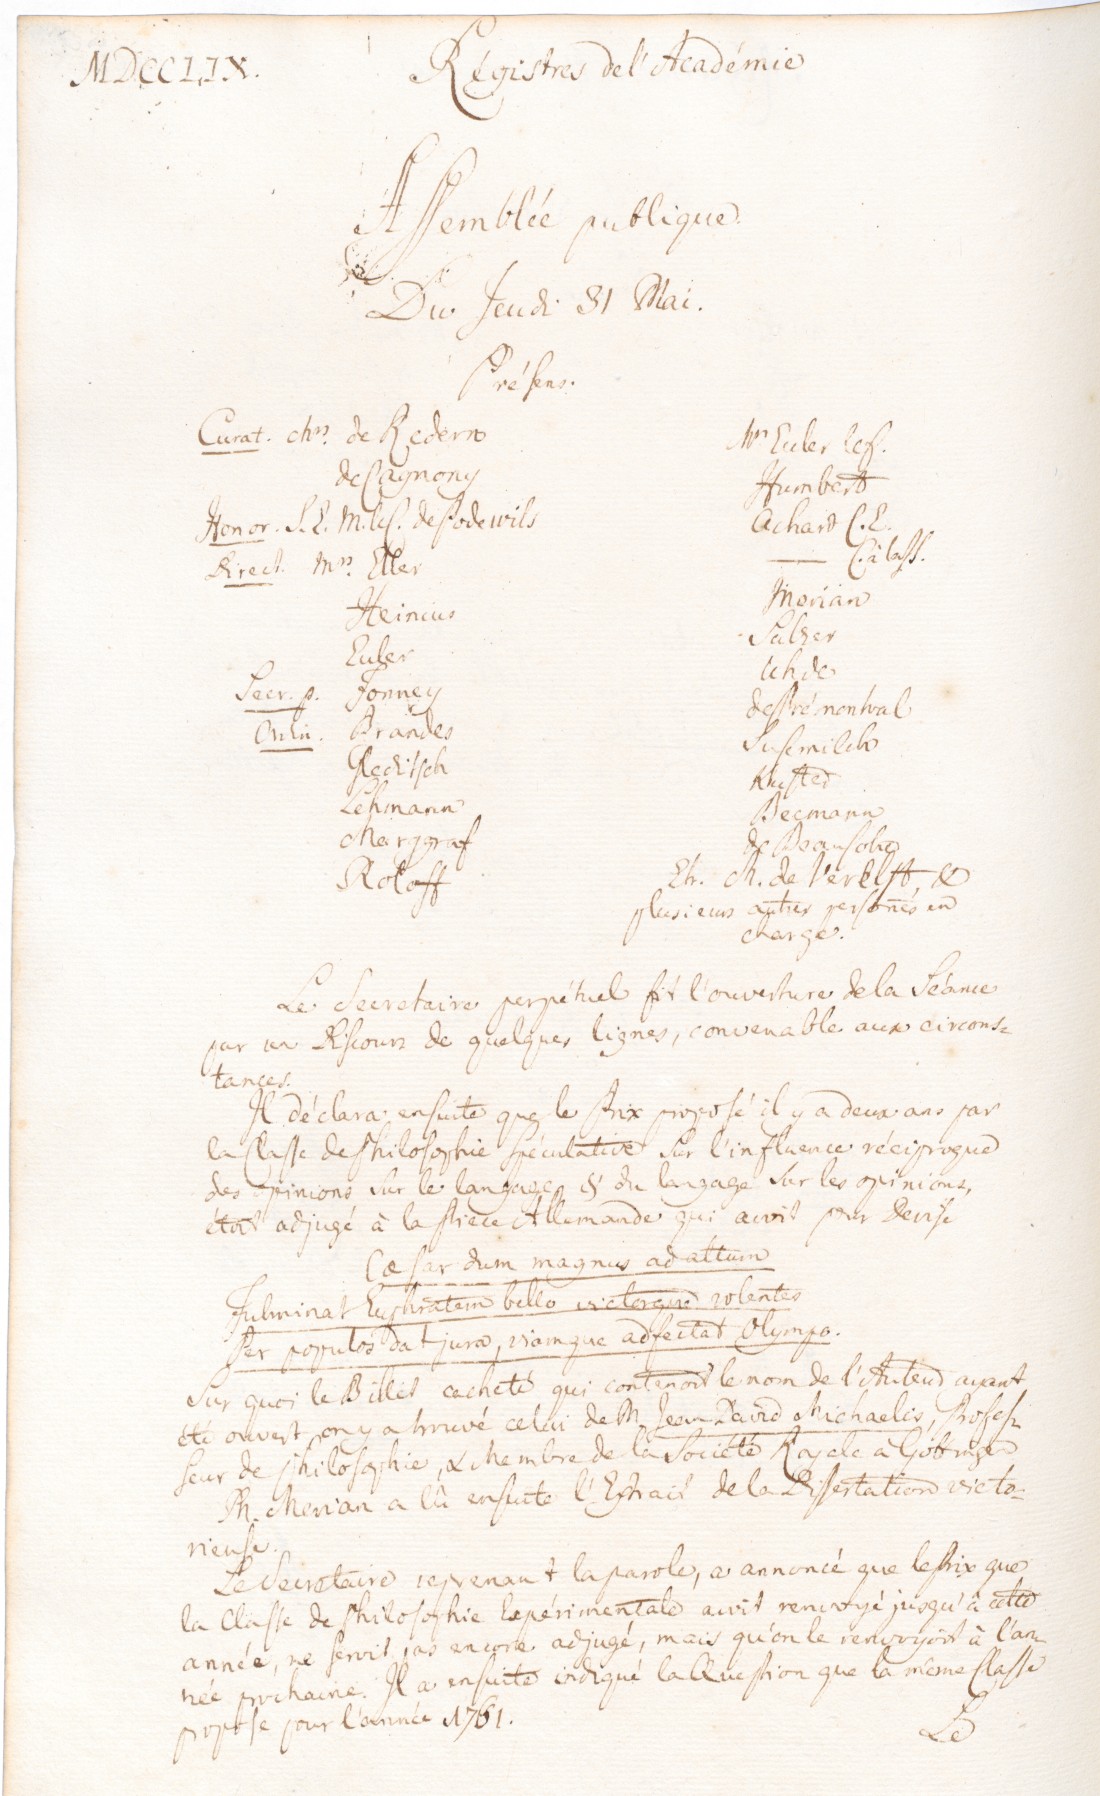 MDCCLIX.
Régistres de l'Académie
Assemblée publique.
Du Jeudi 31 Mai.
Présens.
Curat. Mrs. de Redern
de Cagnony
Honor. S. E. M. le C. de Podewils
Direct. Mrs. Eller
Heinius
Euler
Secr. p. Formey
Ordin. Brandes
Gleditsch
Lehmann
Marggraf
Roloff
Mrs Euler le f.
Humbert
Achard C. E.
— C. à lass.
Merian
Sulzer
Uhde
de Prémontval
Susmilch
Kusted
Becmann
de Beausobre
Etr. M. de Verelst, &
plusieurs autres persones en
charge.
Le Secretaire perpétuel fit l'ouverture de la Séance
par un Discours de quelques lignes, convenable aux circons-
tances.
Il déclara ensuite que le Prix proposé il y a deux ans par
la Classe de Philosophie spéculative sur l'influence réciproque
des opinions sur le langage, & du langage sur les opinions,
étoit adjugé à la Pièce Allemande qui avoit pour Devise
Cæsar dum magnus ad altum
Fulminat Euphratem bello victorque volentes
Per populos dat jura, viamque adfectat Olympo.
Sur quoi le Billet cacheté qui contenoit le nom de l'Auteur ayant
été ouvert, on y a trouvé celui de M. Jean David Michaelis, Profes-
seur de Philosophie, & Membre de la Société Royale à Göttingen
M. Merian a lû ensuite l'Extrait de la Dissertation victo-
rieuse.
Le Secretaire reprenant la parole, a annoncé que le Prix que
la Classe de Philosophie Expérimentale avoit renvoyé jusqu'à cette
année, ne seroit pas encore adjugé, mais qu'on le renvoyoit à l'an-
née prochaine. Il a ensuite indiqué la Question que la même Classe
propose pour l'année 1761.
Le